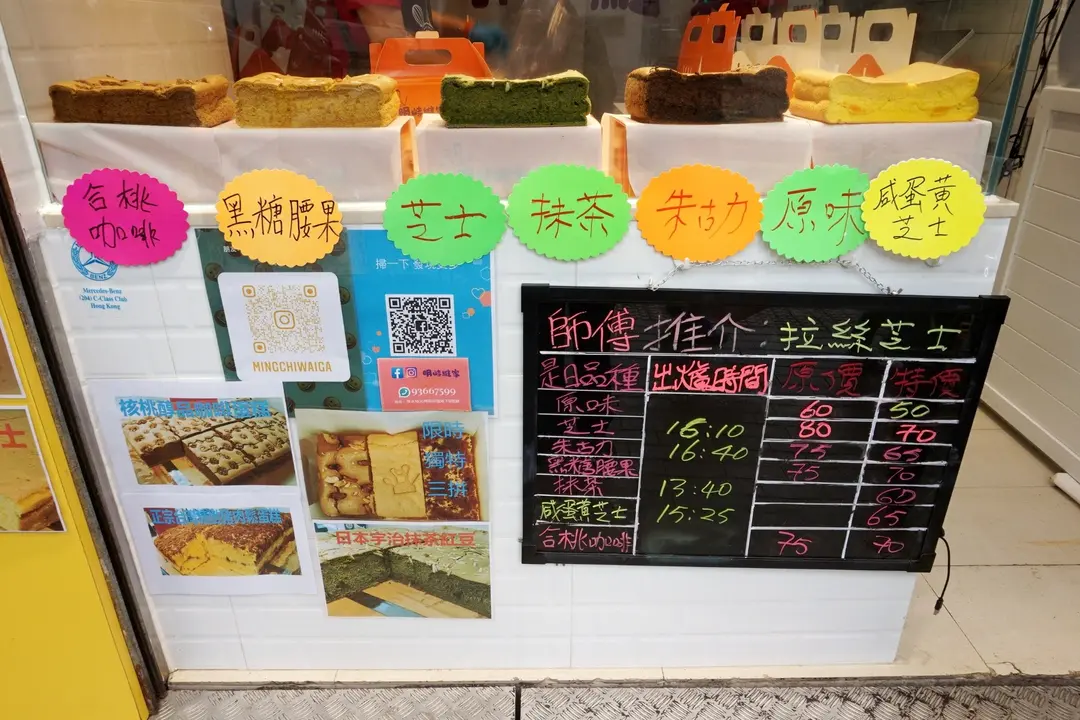 合桃
咖啡
黑糖腰果
芝士
抹茶
朱古力
原味
咸蛋黄
芝士
BENZ
Mercedes-Benz
(204) C-Class Club
Hong Kong
掃一下
MINGCHIWAIGA
93667599
限時
獨特
三拼
日本宇治抹茶紅豆
士
師傅推介:拉絲芝士
是日品種 出爐時間 原價 特價
原味 60 50
芝士 16:10 80 70
朱古力 16:40 75 65
黑糖腰果 75 70
抹茶 13:40 60
咸蛋黄芝士 15:25 65
合桃咖啡 75 70